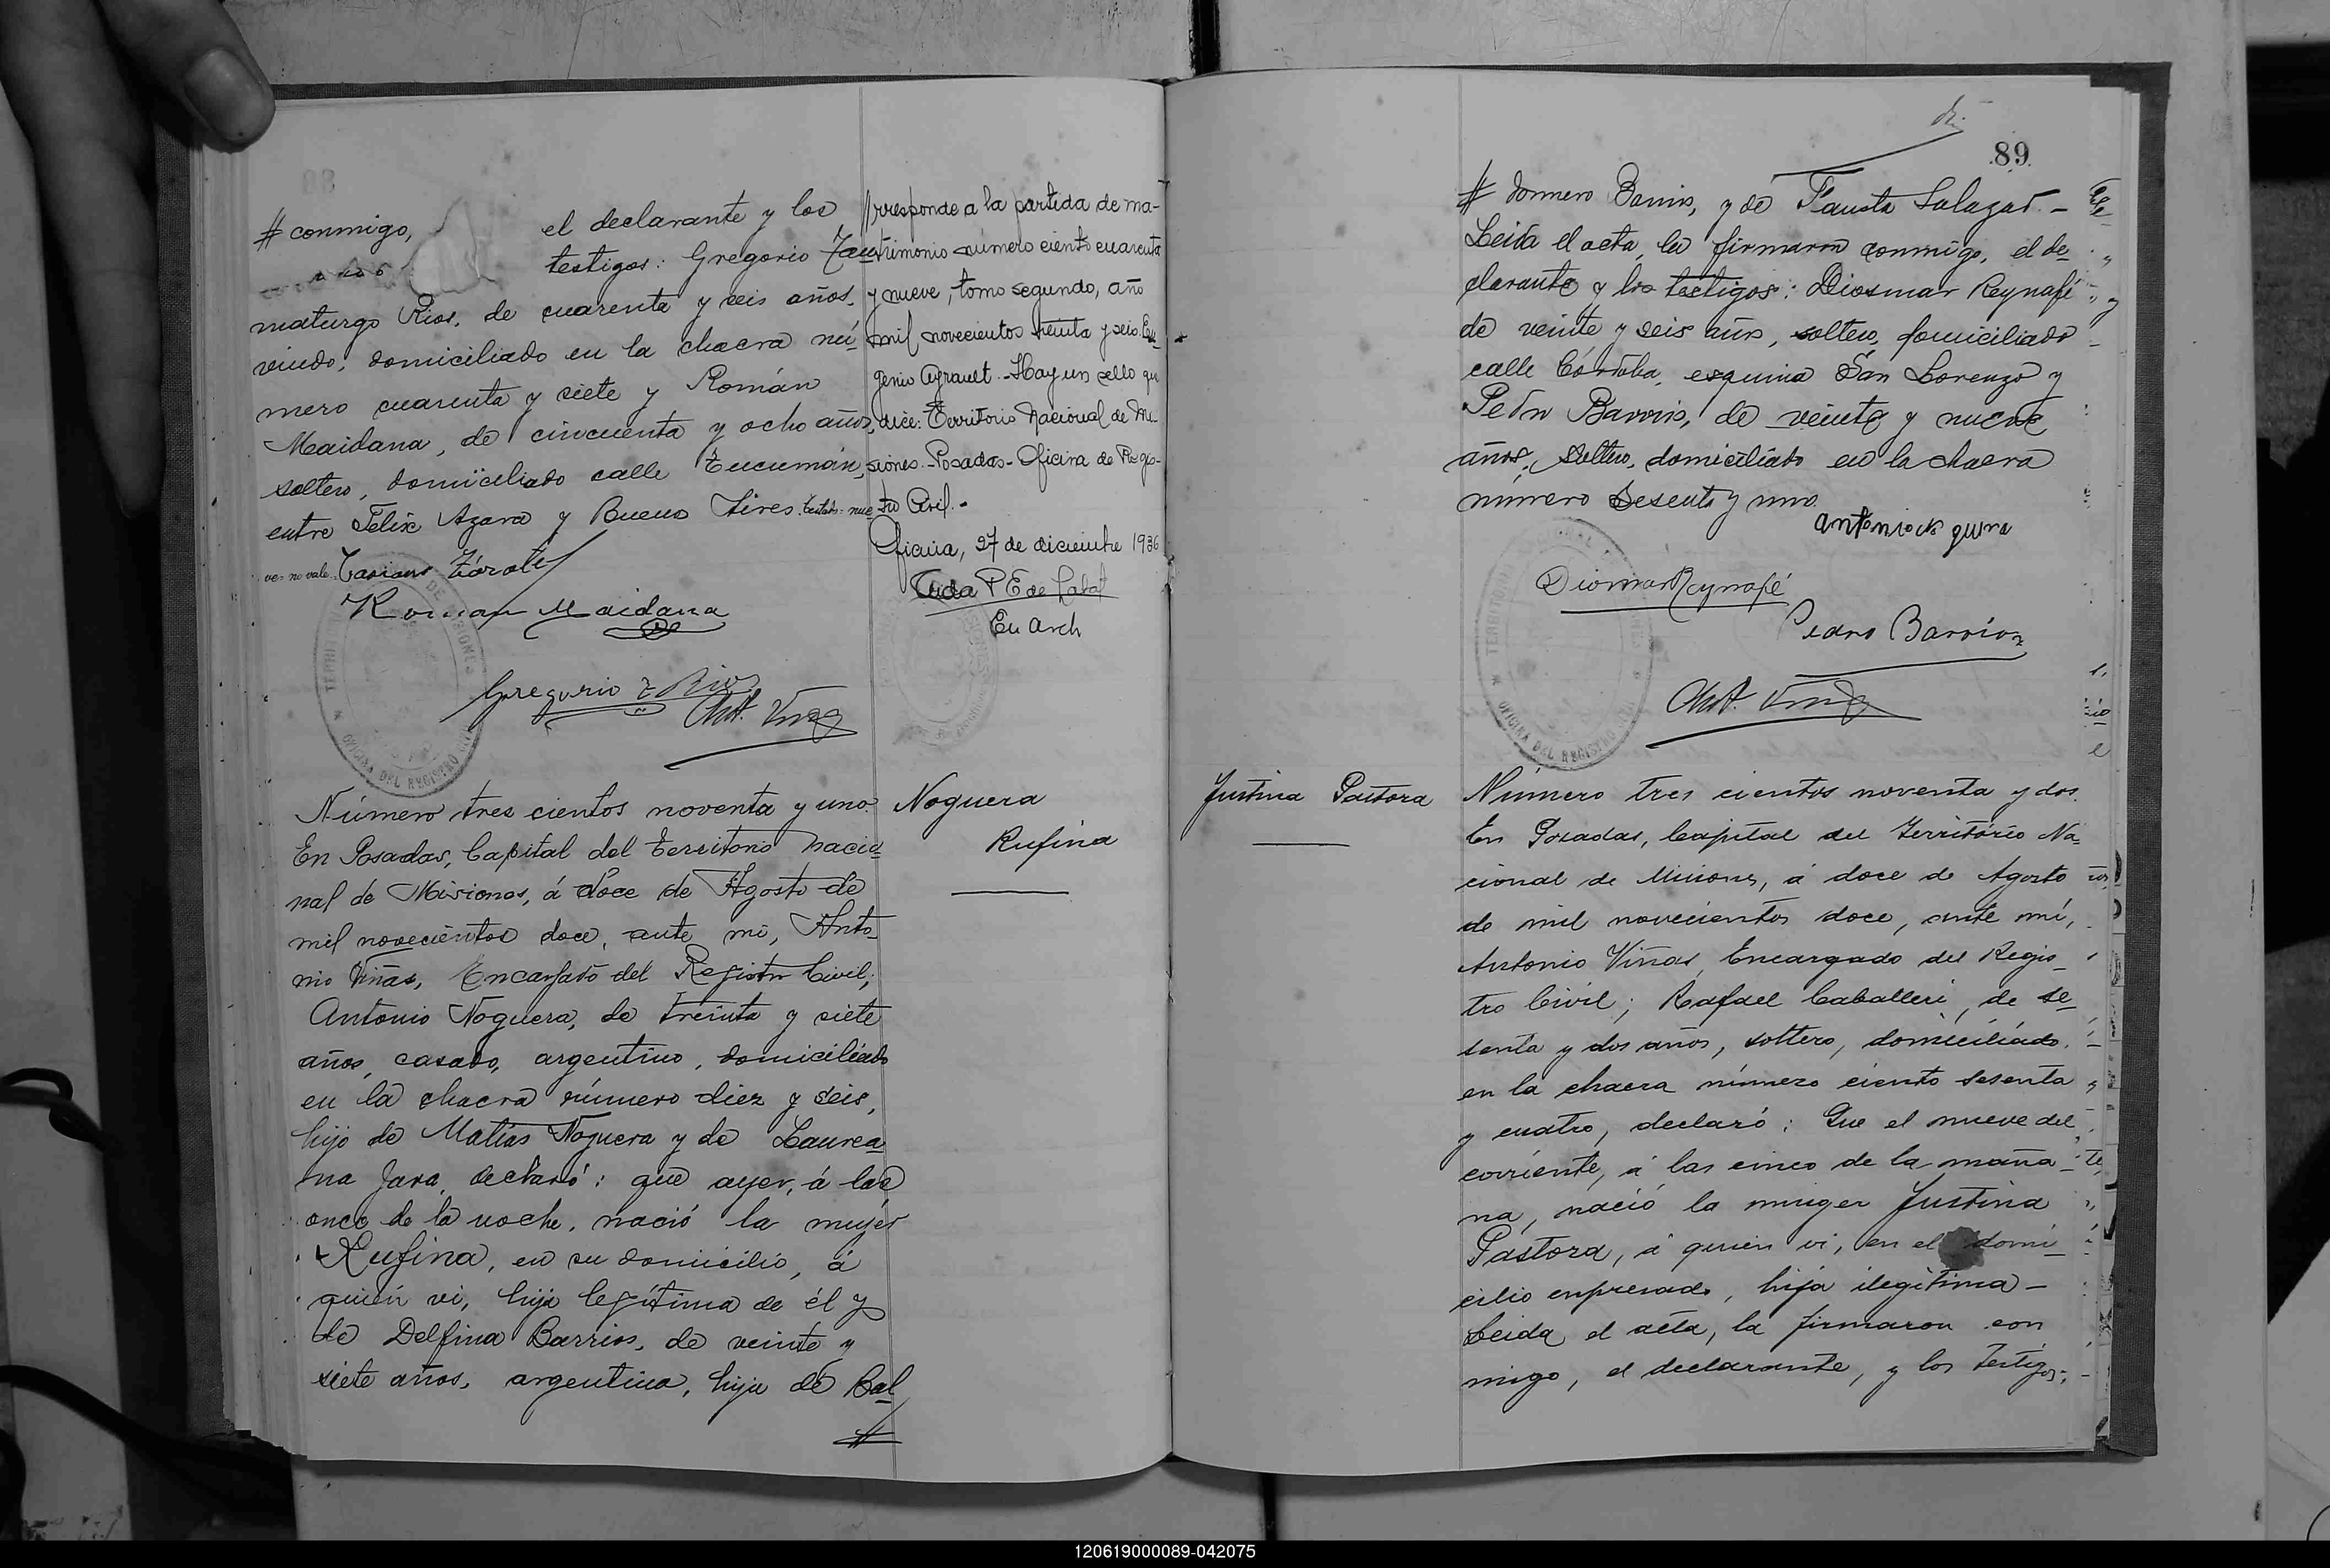 # conmigo, el declarante y los
testigos: Gregorio Tau
maturgo Rios, de cuarenta y seis años,
viudo, domiciliado en la chacra nú-
mero cuarenta y siete y Román
Maidana, de cincuenta y ocho años,
soltero, domiciliado calle Tucumán,
entre Felix Azara y Buenos Aires. testado: nue
ve: no vale. Zárate
Roman Maidana
Gregorio T Rios
Ant. Viñas
rresponde a la partida de ma-
trimonio número ciento cuarenta
y nueve, tomo segundo, año
mil novecientos treinta y seis. Eu-
genio Ayrault.-Hay un sello que
dice: Territorio Nacional de Mi-
siones.-Posadas-Oficina de Regis-
tro Civil.-
Oficina, 27 de diciembre 1936
P E de Labat
En Arch
Número tres cientos noventa y uno
En Posadas, Capital del Territorio Nacio
nal de Misiones, á doce de Agosto de
mil novecientos doce, ante mi, Anto-
nio Viñas, Encargado del Registro Civil;
Antonio Noguera, de treinta y siete
años, casado, argentino, domiciliado
en la chacra número diez y seis,
hijo de Matías Noguera y de Laurea
na Jara, declaró: que ayer, á las
once de la noche, nació la mujer
Rufina, en su domicilio, á
quién vi, hija legítima de él y
de Delfina Barrios, de veinte y
siete años, argentina, hija de Bal
#
Noguera
Rufina
89
# domero Barrios, y de Fausta Salazar.-
Leida el acta, la firmaron conmigo, el de
clarante y los testigos: Diosmar Reynafé
de veinte y seis años, soltero, domiciliado
calle Córdoba, esquina San Lorenzo y
Pedro Barrios, de veinte y nueve
años, soltero, domiciliado en la chacra
número sesenta y uno.
Antonio Noguera
Diosmar Reynafé
Pedro Barrios
Ant. Viñas
Justina Pastora
Número tres cientos noventa y dos.
En Posadas, Capital del Territorio Na-
cional de Misiones, á doce de Agosto
de mil novecientos doce, ante mí,
Antonio Viñas, Encargado del Regis-
tro Civil; Rafael Caballeri, de se
senta y dos años, soltero, domiciliado,
en la chacra número ciento sesenta
y cuatro, declaró: Que el nueve del
corriente, á las cinco de la maña-
na, nació la muger Justina
Pastora, á quien vi, en el domi-
cilio expresado, hija ilegitima-
Leida el acta, la firmaron con
migo, el declarante, y los testigos:-
120619000089-042075